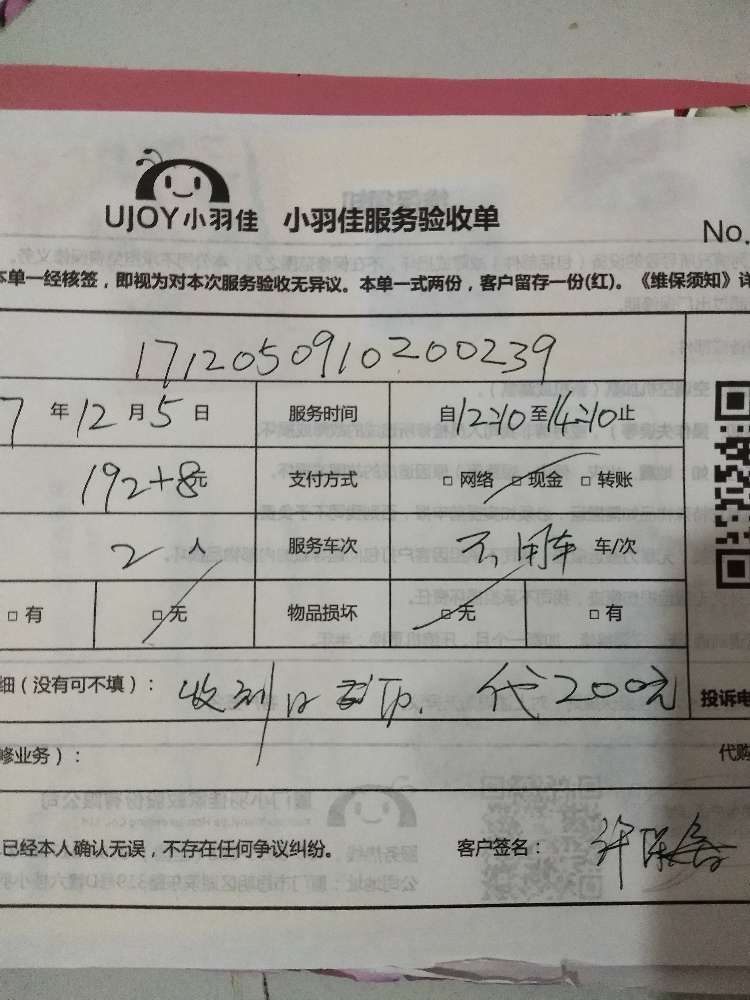 UJOY小羽佳 小羽佳服务验收单
No.
本单一经核签，即视为对本次服务验收无异议。本单一式两份，客户留存一份(红)。《维保须知》详
1712050910200239
7 年 12 月 5 日 服务时间 自12:10至14:10止
192+8元 支付方式 □ 网络 □ 现金 □ 转账
2 人 服务车次 不用车 车/次
□ 有 □ 无 物品损坏 □ 无 □ 有
细（没有可不填）： 收到 代200元 投诉电
修业务）：
代购
已经本人确认无误，不存在任何争议纠纷。 客户签名： 许